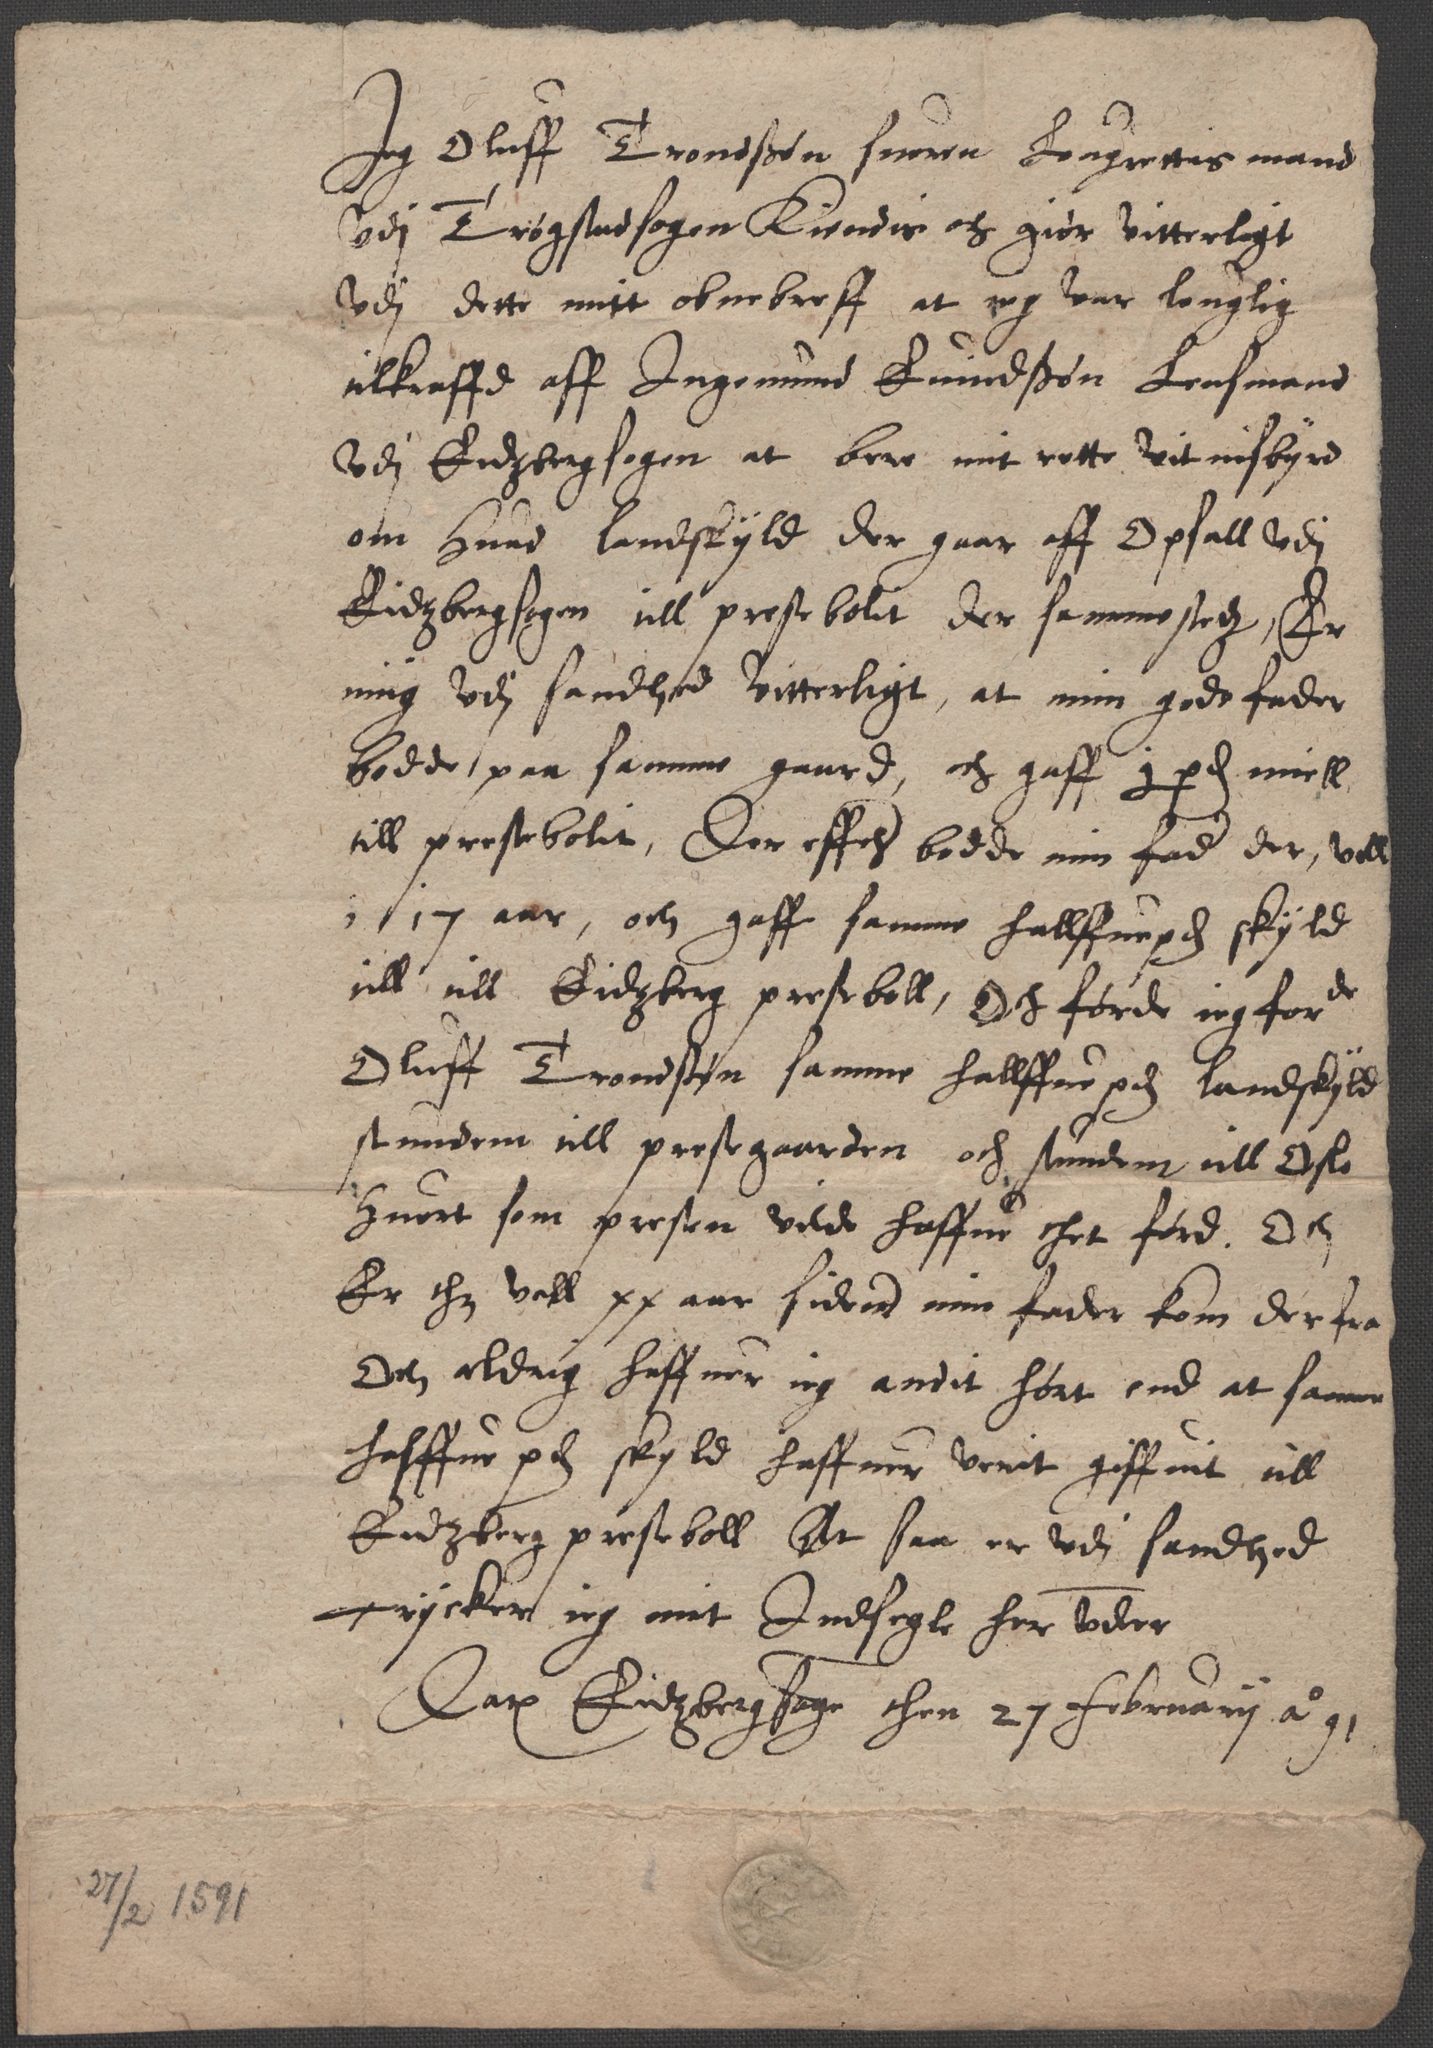 Jeg Oluff Trondßøn suoren Lougrettis mand
vdj Trøgstadsogen Kiendis och giør vitterligt
vdj dette mitt obnebreff at ieg var louglig
tilkraffd aff Ingemund Lensmand
vdj Eidzbergsogen at bere mit rette vitnisbyrd
om huad landskyld der gaar aff Opsall vdj
Eidzbergsogen till prestebolit der sammestedz, Er
mig vdj sandhed vitterligt, at min gode fader
bodde paa samme gaard, och gaff pd miell
till prestebolit, Der effther bodde min fader der, vell
i 17 aar, och gaff samme hallffue pd skyld
till till Eidzberg presteboll, Och førde ieg forde
Oluff Trondsøn samme hallffue pd landskyld
stundem till prestegaarden och stundem till Oslo
huort som presten vilde haffue thet ført. Och
Er thz vell xx aar siden min fader kom derfra
Och aldrig haffuer ieg andit hørt end at samme
halffue pd skyld haffuer verit giffuit till
Eidzberg presteboll At saa er vdj sandhed
trycker ieg mit Indsegle her vder
Datum Eidzbergsogen then 27 Februarij ao 91
27/2 1591